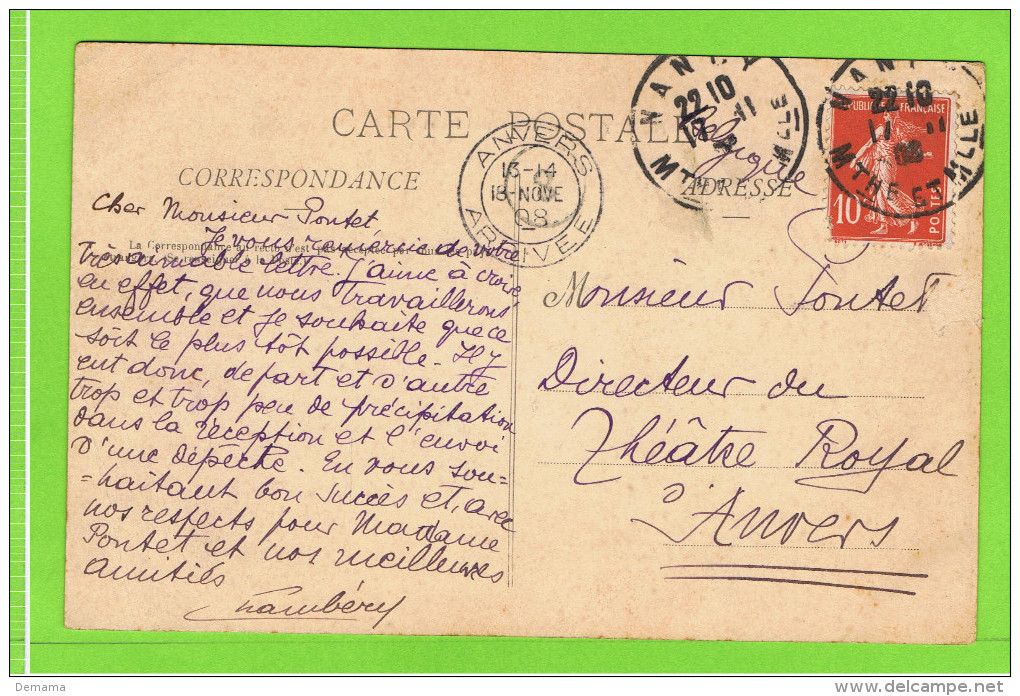 CARTE POSTALE
CORRESPONDANCE
ADRESSE
La Correspondance au recto n'est pas
Cher Monsieur Pontet
Je vous remercie de votre
très aimable lettre. J'aime à croire
en effet, que nous travaillerons
ensemble et je souhaite que ce
soit le plus tôt possible. Il y
eut donc, de part et d'autre
trop et trop peu de précipitation
dans la réception et l'envoi
d'une dépêche. En vous sou=
=haitant bon succès et, avec
nos respects pour Madame
Pontet et nos meilleures
amitiés
Chambéry
ANVERS
13-14
18 NOVE
08
ARRIVEE
NANCY
22 10
11
MTHE MLLE
NANCY
22 10
17 11
08
MTHE ET MLLE
RÉPUBLIQUE FRANÇAISE
10
POSTES
Belgique
Monsieur Pontet
Directeur du
Théâtre Royal
d'Anvers
Demama
delcampe.net